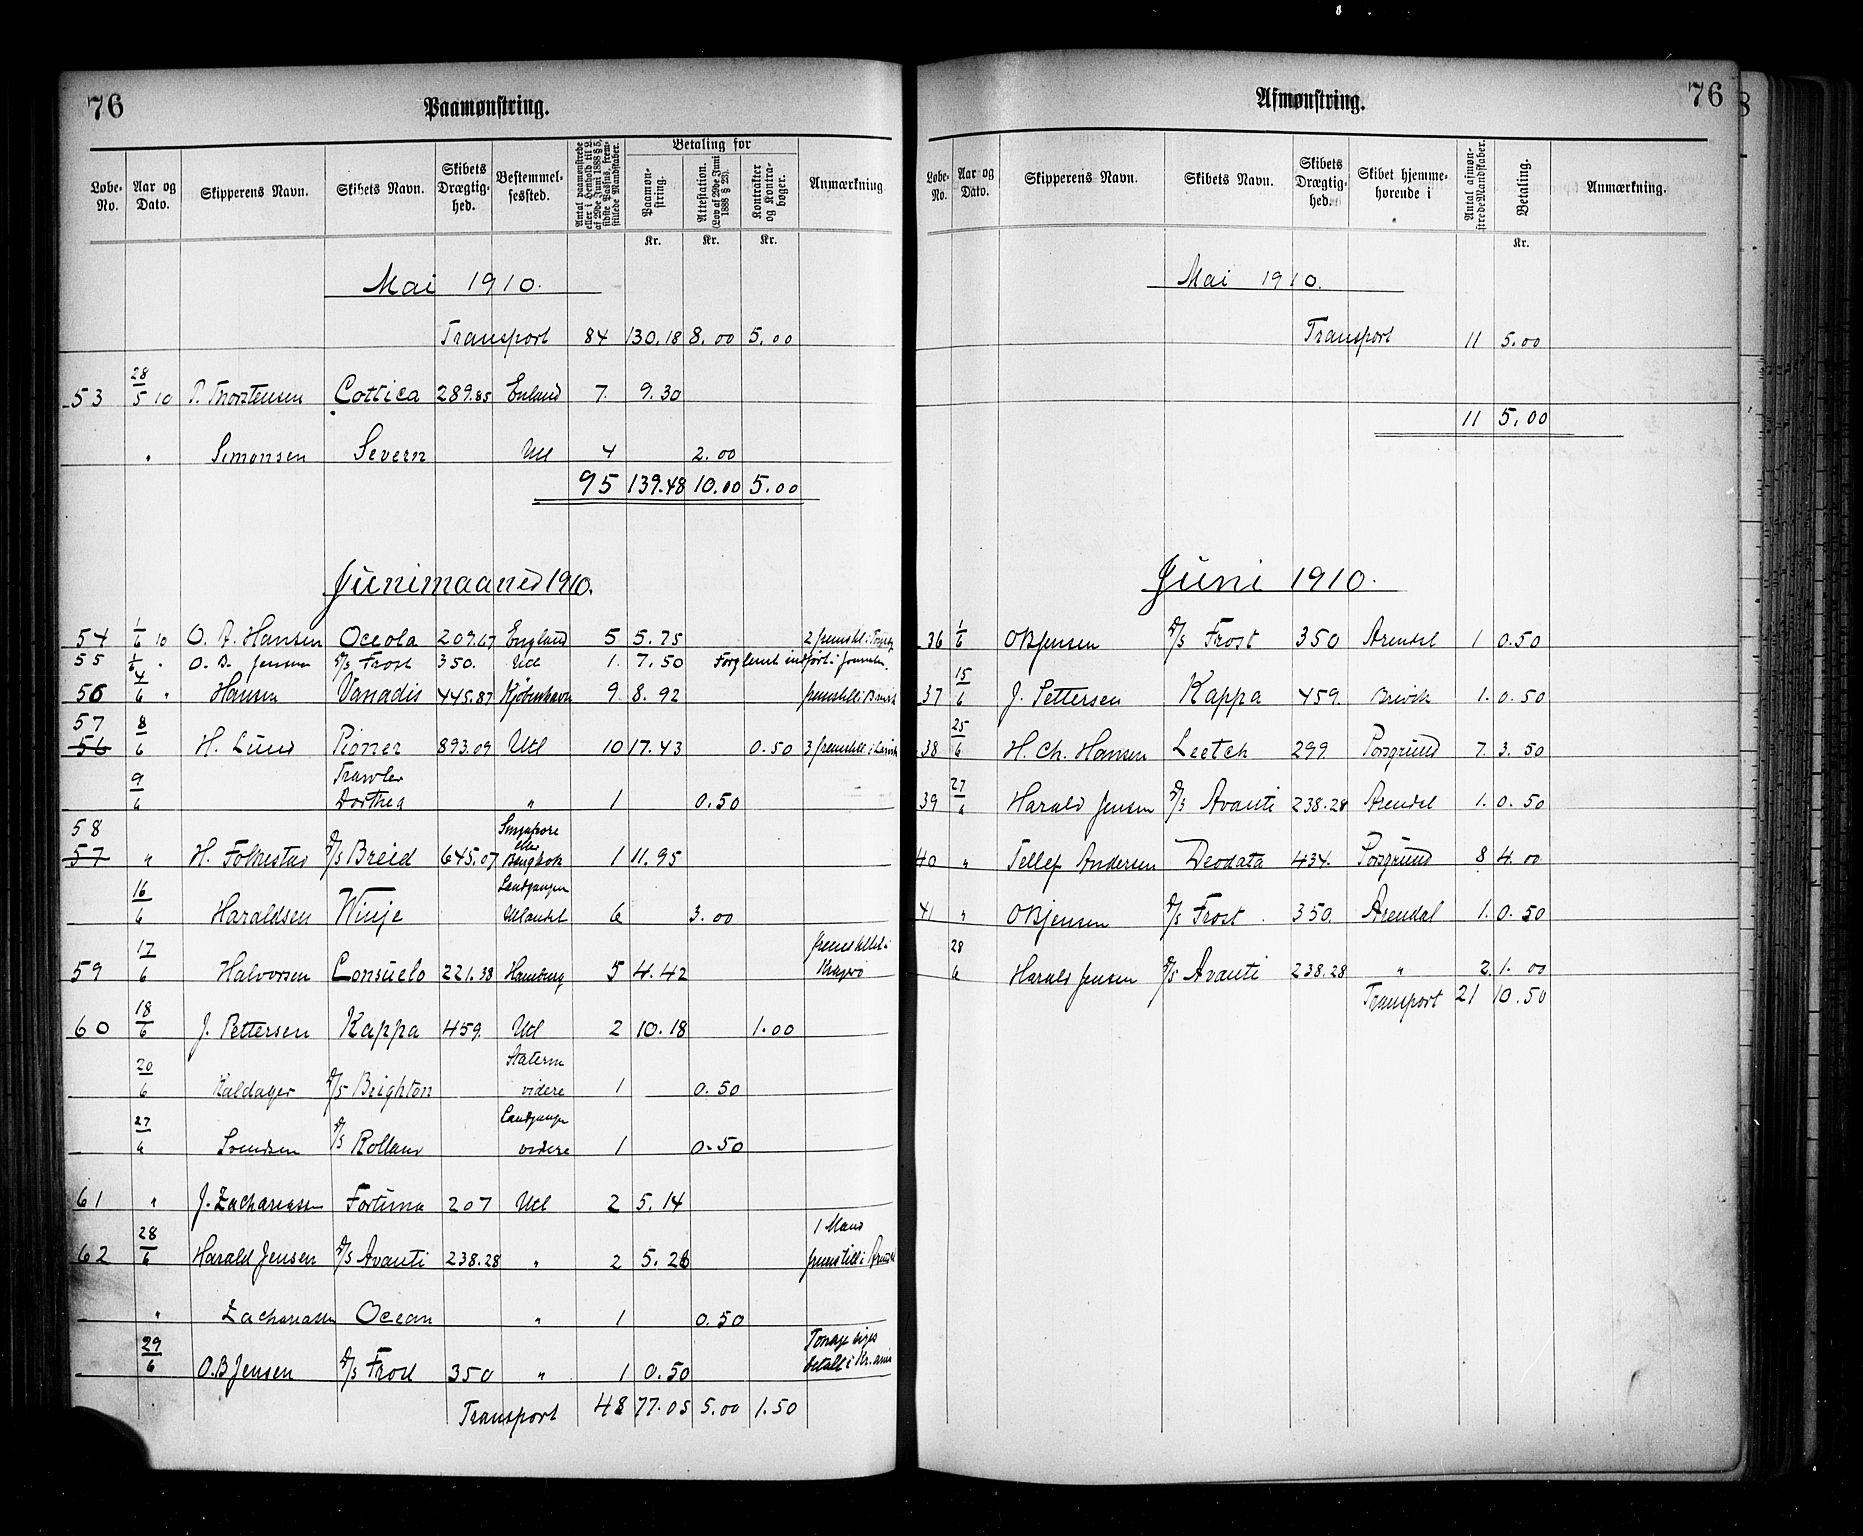 76 Paamønstring.
Løbe-No. Aar og Dato. Skipperens Navn. Skibets Navn. Skibets Drægtighed. Bestemmelsessted. Antal paamønstrede eller i Henhold til L. af 29de Juni 1888 § 5, sidste Passus, fremstillede Mandskaber. Betaling for Paamønstring. Attestation. (Lov af 29de Juni 1888 § 23). Kontrakter og Kontrabøger. Anmærkning
Kr. Kr. Kr.
Mai 1910.
Transport 84 130.18 8.00 5.00
53 28/5 10 P. Thorstensen Cottica 289.85 Enland 7. 9.30
" Simonsen Severn Utl 4 2.00
95 139.48 10.00 5.00
Junimaaned 1910.
54 1/6 10 O. A. Hansen Oceola 209.67 England 5 5.75 2 fremstil. i
55 1/6 " O. B. Jensen D/S Frost 350. Utl 1. 7.50 Forglemt indført i Journalen.
56 4/6 " Hansen Vanadis 445.87 Kjøbenhavn 9. 8.92 fremstill i Brevik
57
56 8/6 H. Lund Pioner 893.09 Utl 10 17.43 0.50 3 fremstill i Larvik
9/6 Trawler
Dorthea " 1 0.50
58 Singapore
57 " H. Folkestad D/S Breid 645.07 eller Bangkok 1 11.95
16/6 Haraldsen Vinje Landgangen Utlandet 6 3.00
59 17/6 Halvorsen Consuelo 221.38 Hamburg 5 4.42 fremstillet i Kragerø
60 18/6 J. Pettersen Kappa 459. Utl 2 10.18 1.00
20/6 Kaldager D/S Brighton Statern videre 1 0.50
27/6 Svendsen D/S Rolland Landgangen videre 1 0.50
61 " J. Zachariassen Fortuna 207 Utl 2 5.14
62 28/6 Harald Jensen D/S Avanti 238.28 " 2 5.26 1 Mand fremstill i Arendal
" Zachariassen Ocean " 1 0.50
29/6 O.B Jensen D/S Frost 350 " 1 0.50 betalt i Kr.ania
Transport 48 77.05 5.00 1.50
Afmønstring. 76
Løbe-No. Aar og Dato. Skipperens Navn. Skibets Navn. Skibets Drægtighed. Skibet hjemmehørende i Antal afmønstrede Mandskaber. Betaling. Anmærkning.
Kr.
Mai 1910.
Transport 11 5.00
11 5.00
Juni 1910.
36 1/6 O B Jensen D/S Frost 350 Arendal 1 0.50
37 15/6 J. Pettersen Kappa 459. Brevik 1. 0.50
38 25/6 H. Ch. Hansen Leetch 299. Porsgrund 7. 3.50
39 27/6 Harald Jensen D/S Avanti 238.28 Arendal 1. 0.50
40 " Tellef Andersen Deodata 434. Porsgrund 8 4.00
41 " O B Jensen D/S Frost 350. Arendal 1. 0.50
28/6 Harald Jensen D/S Avanti 238.28 " 2 1.00
Transport 21 10.50